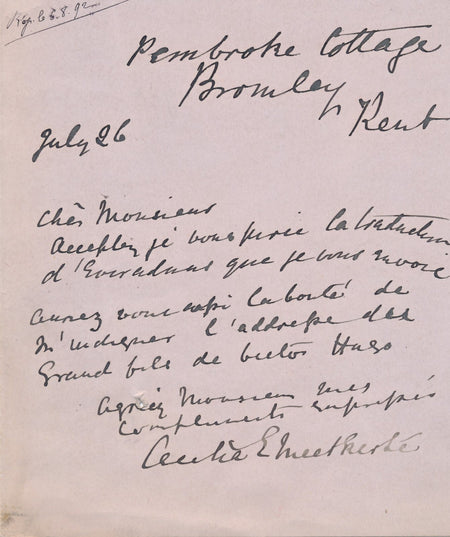 Rep. le 5.8.92
Pembroke Cottage
Bromley
Kent
July 26
Cher Monsieur
Acceptez je vous prie la traduction
d'Eviradnus que je vous envoie
aurez vous aussi la bonté de
m'indiquer l'addresse du
Grand fils de Victor Hugo
Agréez Monsieur mes
compliments empressés
Cecilia E Meetkerke